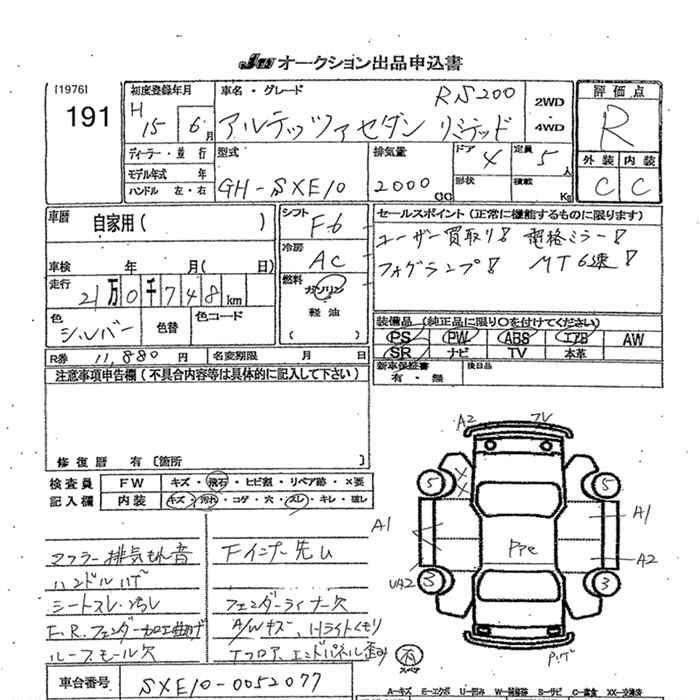 JU オークション出品申込書
[1976]
191
初度登録年月
H15 6月
車名・グレード
RS200
アルテッツァセダン リミテッド
2WD
4WD
評価点
R
外装 内装
C C
ディーラー・並行
モデル年式 年
ハンドル 左・右
型式
GH-SXE10
排気量
2000 CC
ドア 4
形状
定員 5人
積載 Kg
車歴 自家用( )
シフト F6
セールスポイント(正常に機能するものに限ります)
ユーザー買取り! 電格ミラー!
フォグランプ! MT6速!
冷房 AC
車検 年 月( 日)
走行 21万0千748km
燃料 ガソリン
軽油
( )
色 シルバー
色替
色コード
装備品(純正品に限り○を付けてください)
PS PW ABS エアB AW
SR ナビ TV 本革
R券 11,880円
名変期限 月 日
新車保証書
有・無
後日品
注意事項申告欄(不具合内容等は具体的に記入して下さい)
修復歴 有〔箇所 〕
検査員
記入欄
FW キズ・飛石・ヒビ割・リペア跡・×要
内装 キズ・汚れ・コゲ・穴・スレ・キレ・破レ
マフラー排気もれ音
Fインナー先し
ハンドルハゲ
シートスレ・汚れ
フェンダーライナー欠
F.R.フェンダー加工曲げ
A/Wキズ、Hライトくもり
ルーフモール欠
Tフロア、エンドパネル歪み
車台番号 SXE10-0052077
A2
5 5
A1 A1
A2
UA2
3 3
A-キズ E-エクボ U-凹み
XX-交換済